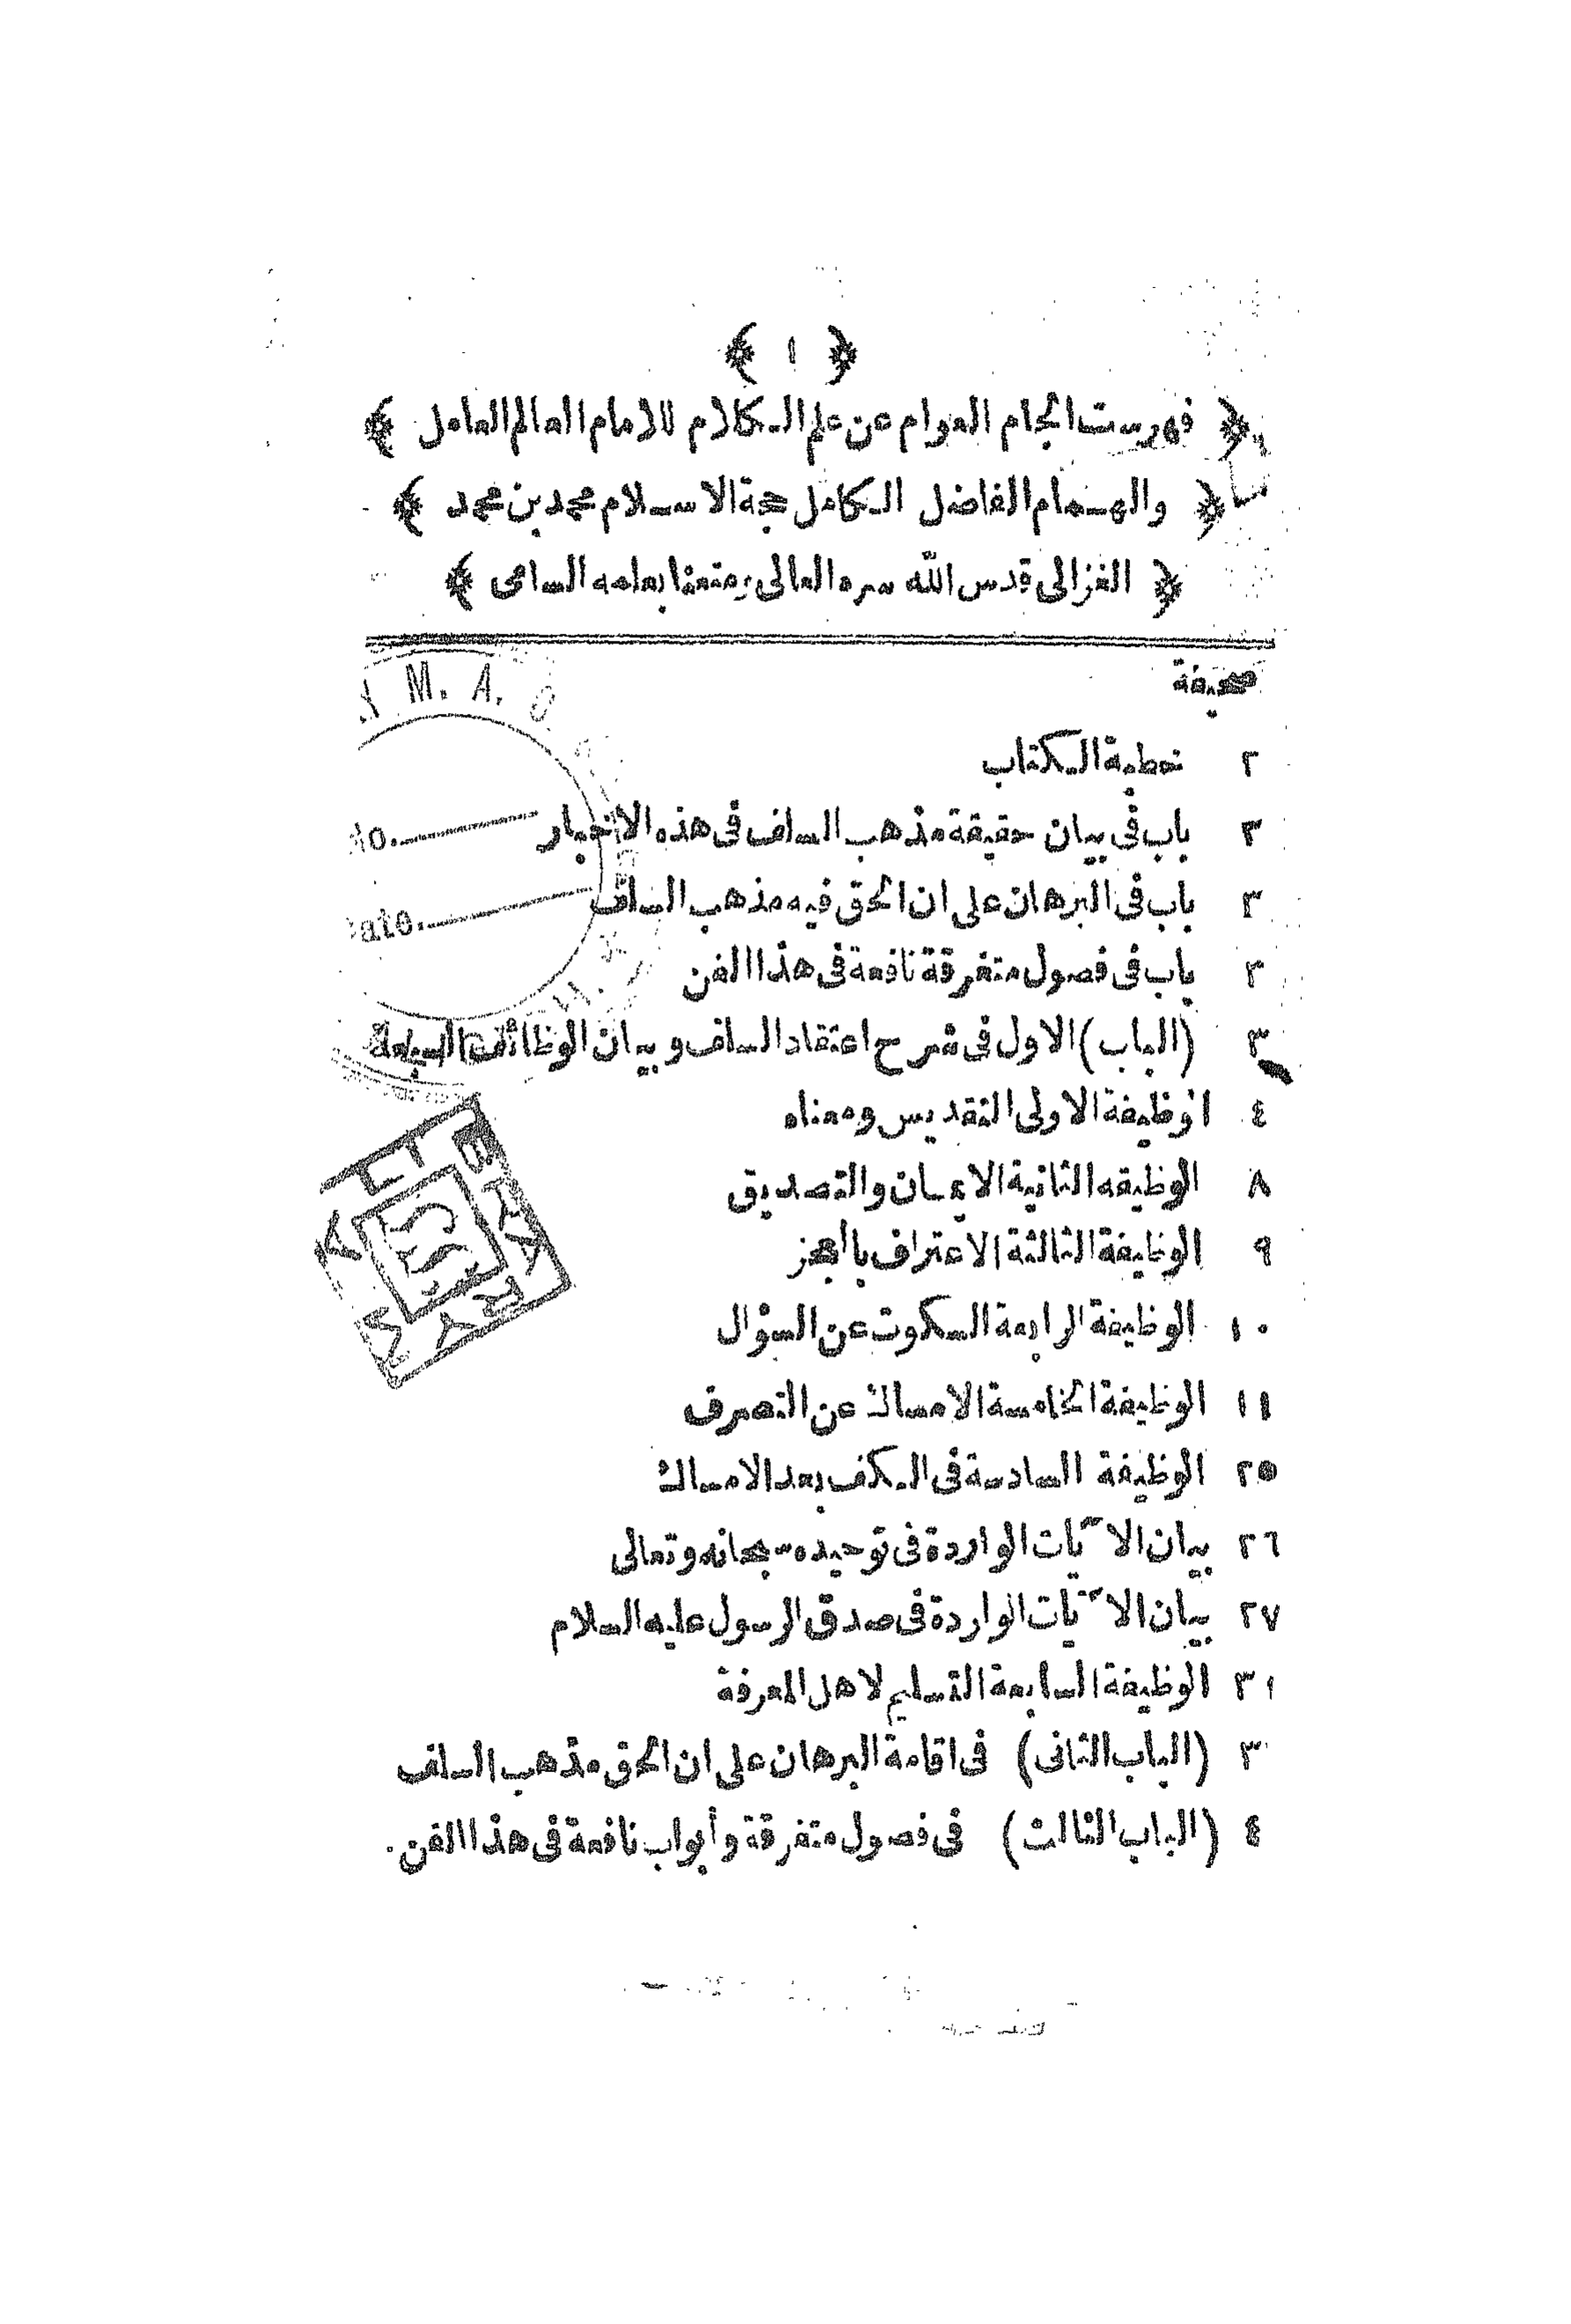 ﴿ ١ ﴾
﴿ فهرست الجام العوام عن علم الكلام للامام العالم العامل ﴾
﴿ والهمام الفاضل الكامل حجة الاسلام محمد بن محمد ﴾
﴿ الغزالى قدس الله سره العالى ومتعنا بعلمه السامى ﴾
صحيفة
٢ خطبة الكتاب
٣ باب فى بيان حقيقة مذهب السلف فى هذه الاخبار
٣ باب فى البرهان على ان الحق فيه مذهب السلف
٣ باب فى فصول متفرقة نافعة فى هذا الفن
٣ (الباب) الاول فى شرح اعتقاد السلف وبيان الوظائف السبعة
٤ الوظيفة الاولى التقديس ومعناه
٨ الوظيفه الثانية الايمان والتصديق
٩ الوظيفة الثالثة الاعتراف بالعجز
١٠ الوظيفة الرابعة السكوت عن السؤال
١١ الوظيفة الخامسة الامساك عن التصرف
٢٥ الوظيفة السادسة فى الكف بعد الامساك
٢٦ بيان الآيات الواردة فى توحيده سبحانه وتعالى
٢٧ بيان الآيات الواردة فى صدق الرسول عليه السلام
٣١ الوظيفة السابعة التسليم لاهل المعرفة
٣ (الباب الثانى) فى اقامة البرهان على ان الحق مذهب السلف
٤ (الباب الثالث) فى فصول متفرقة وأبواب نافعة فى هذا الفن.
M. A. O.